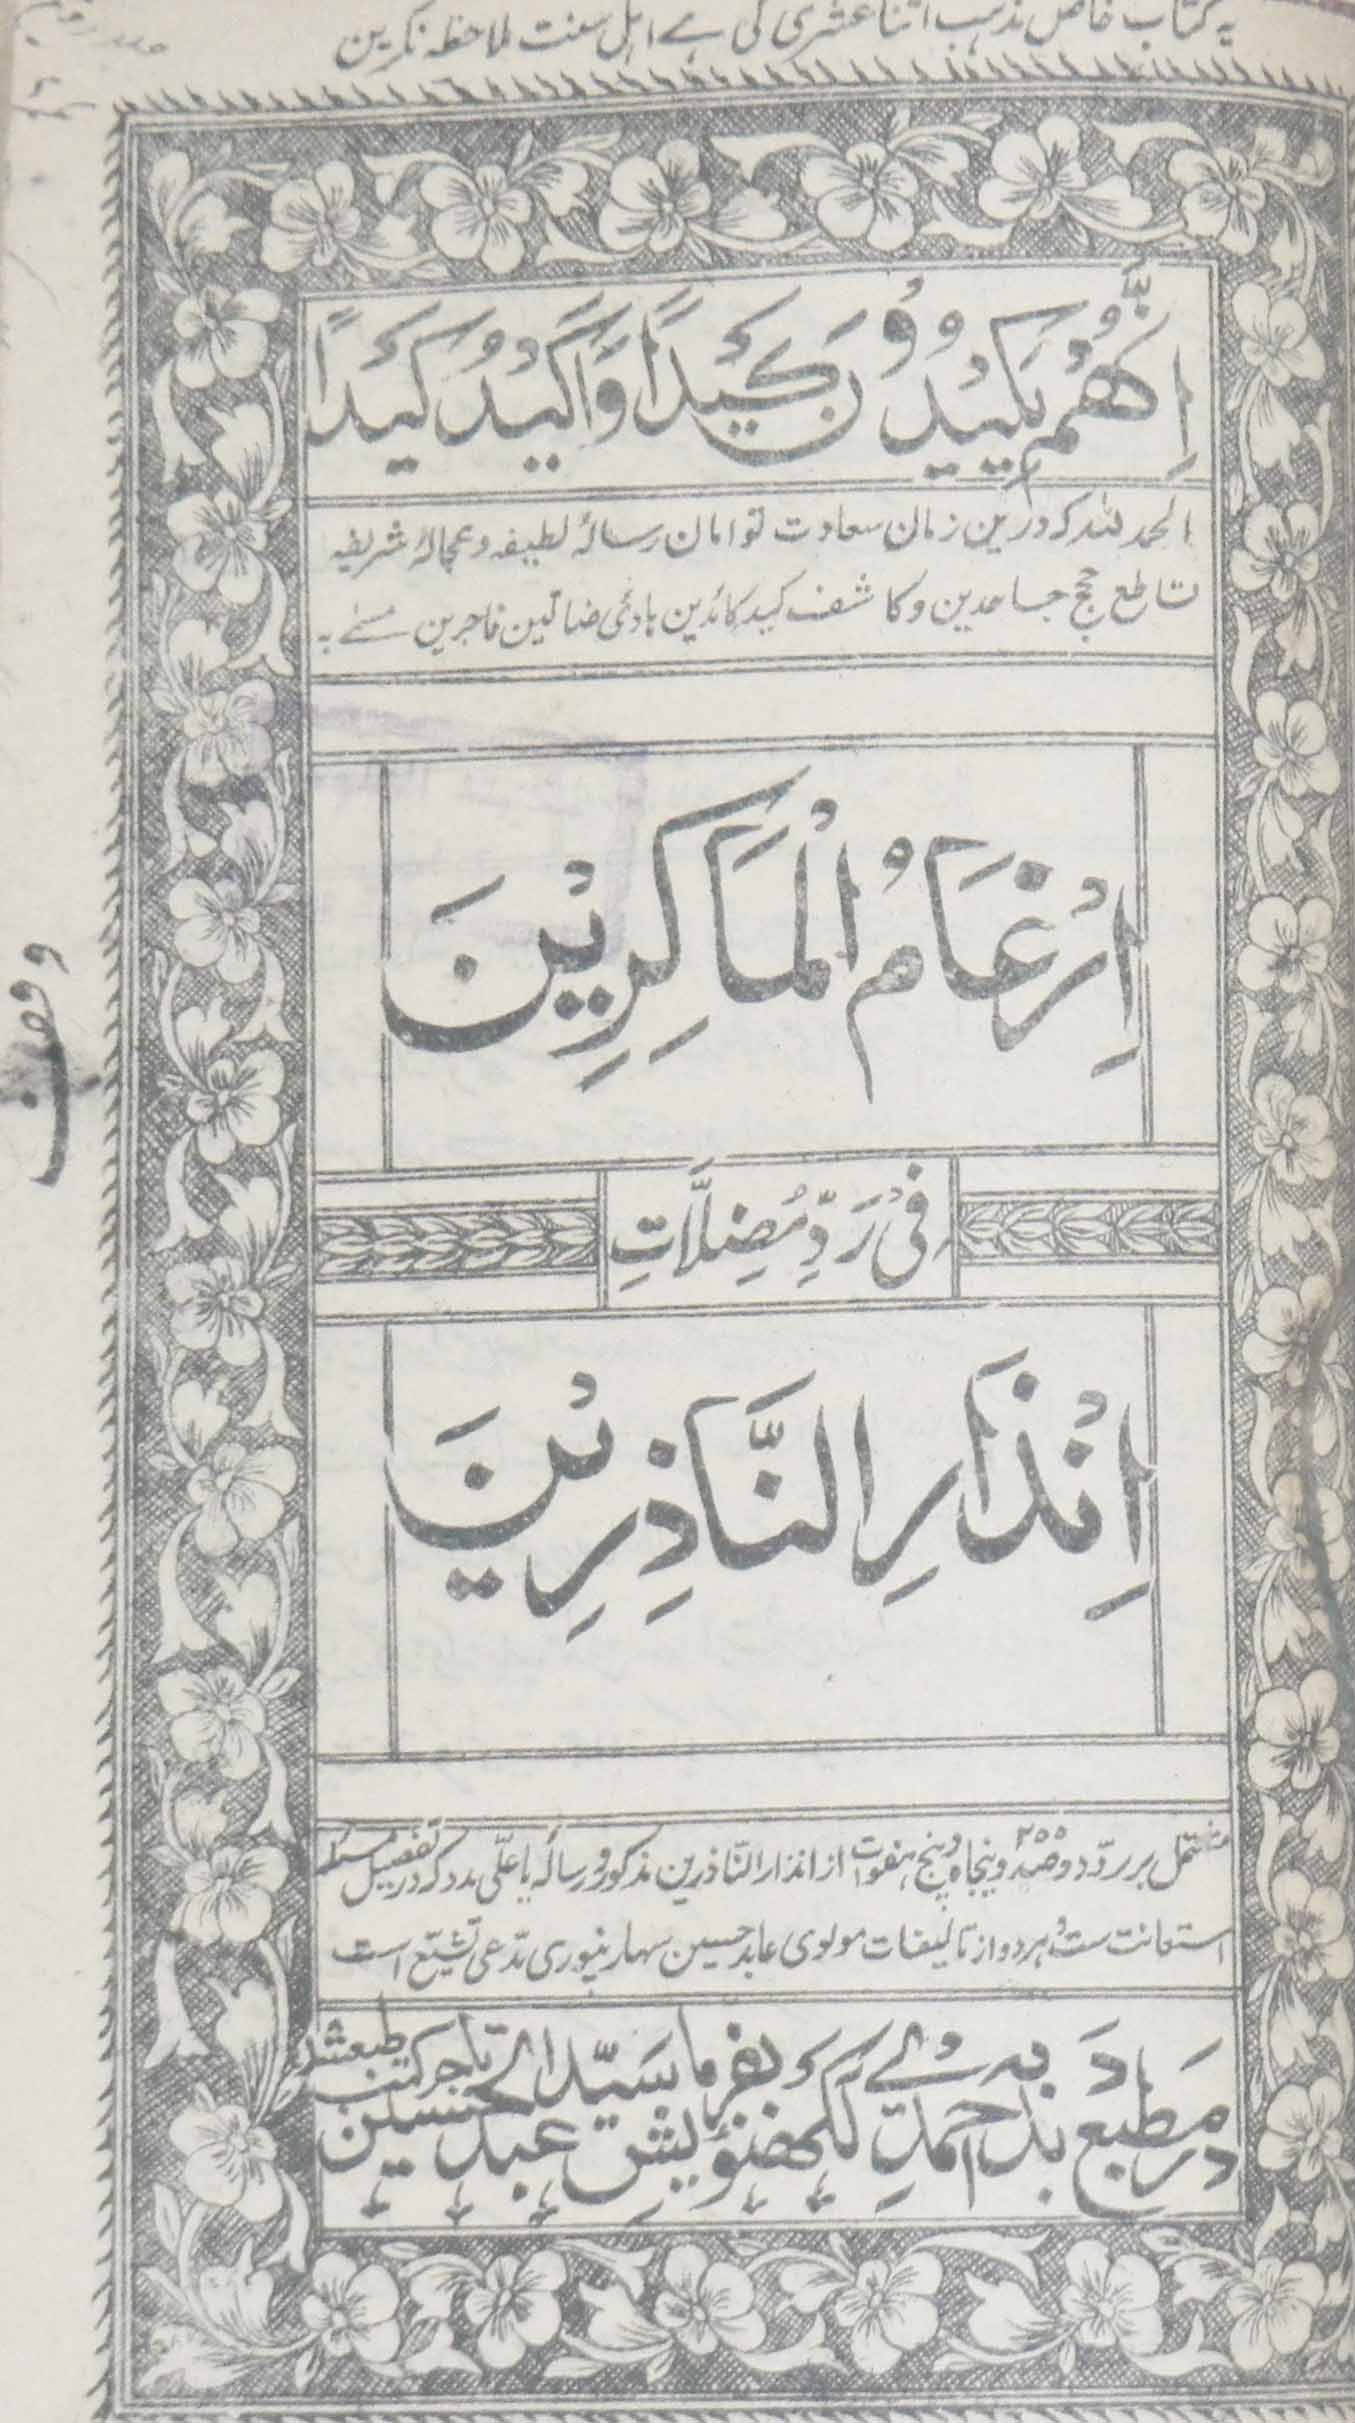 یہ کتاب خاص مذہب اثنا عشری کی ہے اہل سنت ملاحظہ نکرین
اِنَّهُمْ يَكِيْدُوْنَ كَيْدًا وَّاَكِيْدُ كَيْدًا
الحمد للہ کہ درین زمان سعادت توامان رسالۂ لطیفہ و عجالۂ شریفہ
قاطع حجج جاحدین و کاشف کید کائدین ہادئ ضالین فاجرین مسمے بہ
اِرْغَامُ الْمَاكِرِيْنَ
فِيْ رَدِّ مُضِلَّاتِ
اِنْذَارِ النَّاذِرِيْنَ
وقف
مشتمل بر ردّ دو صد و پنجاہ و پنج ۲۵۵ ہفوات از انذار النّاذرین مذکور و رسالہ یا علّی مدد کہ در تفصیل مسئلہ
استعانت ست و ہر دو از تالیفات مولوی عابد حسین سہارنپوری مدّعی تشیّع است
در مطبع دبدبہ احمدی لکھنؤ بفرمایش سیّد عبد الحسین تاجر کتب طبع شد